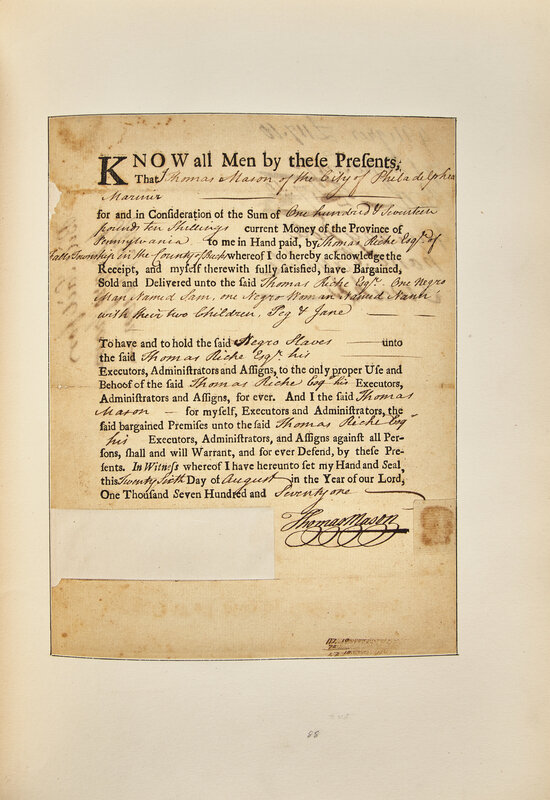 KNOW all Men by theſe Preſents,
That Thomas Mason of the City of Philadelphia
Marinir
for and in Conſideration of the Sum of One hundred & Seventeen
pounds ten Shillings current Money of the Province of
Pennsylvania to me in Hand paid, by Thomas Riche Esqr. of
Falls Township in the County of Bucks whereof I do hereby acknowledge the
Receipt, and myſelf therewith fully ſatisfied, have Bargained,
Sold and Delivered unto the ſaid Thomas Riche Esqr. One Negro
Man Named Sam, one Negro Woman Named Nann
with their two Children, Peg & Jane
To have and to hold the ſaid Negro Slaves unto
the ſaid Thomas Riche Esqr. his
Executors, Adminiſtrators and Aſſigns, to the only proper Uſe and
Behoof of the ſaid Thomas Riche Esqr his Executors,
Adminiſtrators and Aſſigns, for ever. And I the ſaid Thomas
Mason for myſelf, Executors and Adminiſtrators, the
ſaid bargained Premiſes unto the ſaid Thomas Riche Esqr
his Executors, Adminiſtrators, and Aſſigns againſt all Per-
ſons, ſhall and will Warrant, and for ever Defend, by theſe Pre-
ſents. In Witneſs whereof I have hereunto ſet my Hand and Seal,
this Twenty Sixth Day of August in the Year of our Lord,
One Thouſand Seven Hundred and Seventy one
Thomas Mason
88